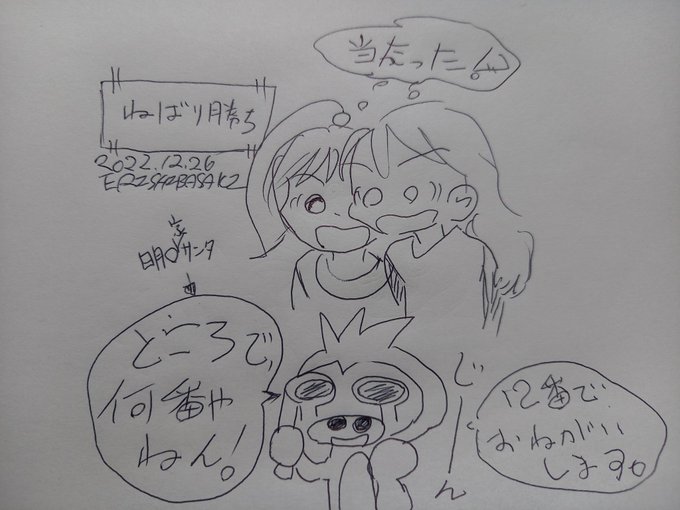 当たったん
ねばり勝ち
2022.12.26
サンタ
ところで、
何番や
ねん!
じーん
12番で
おねがい
します。